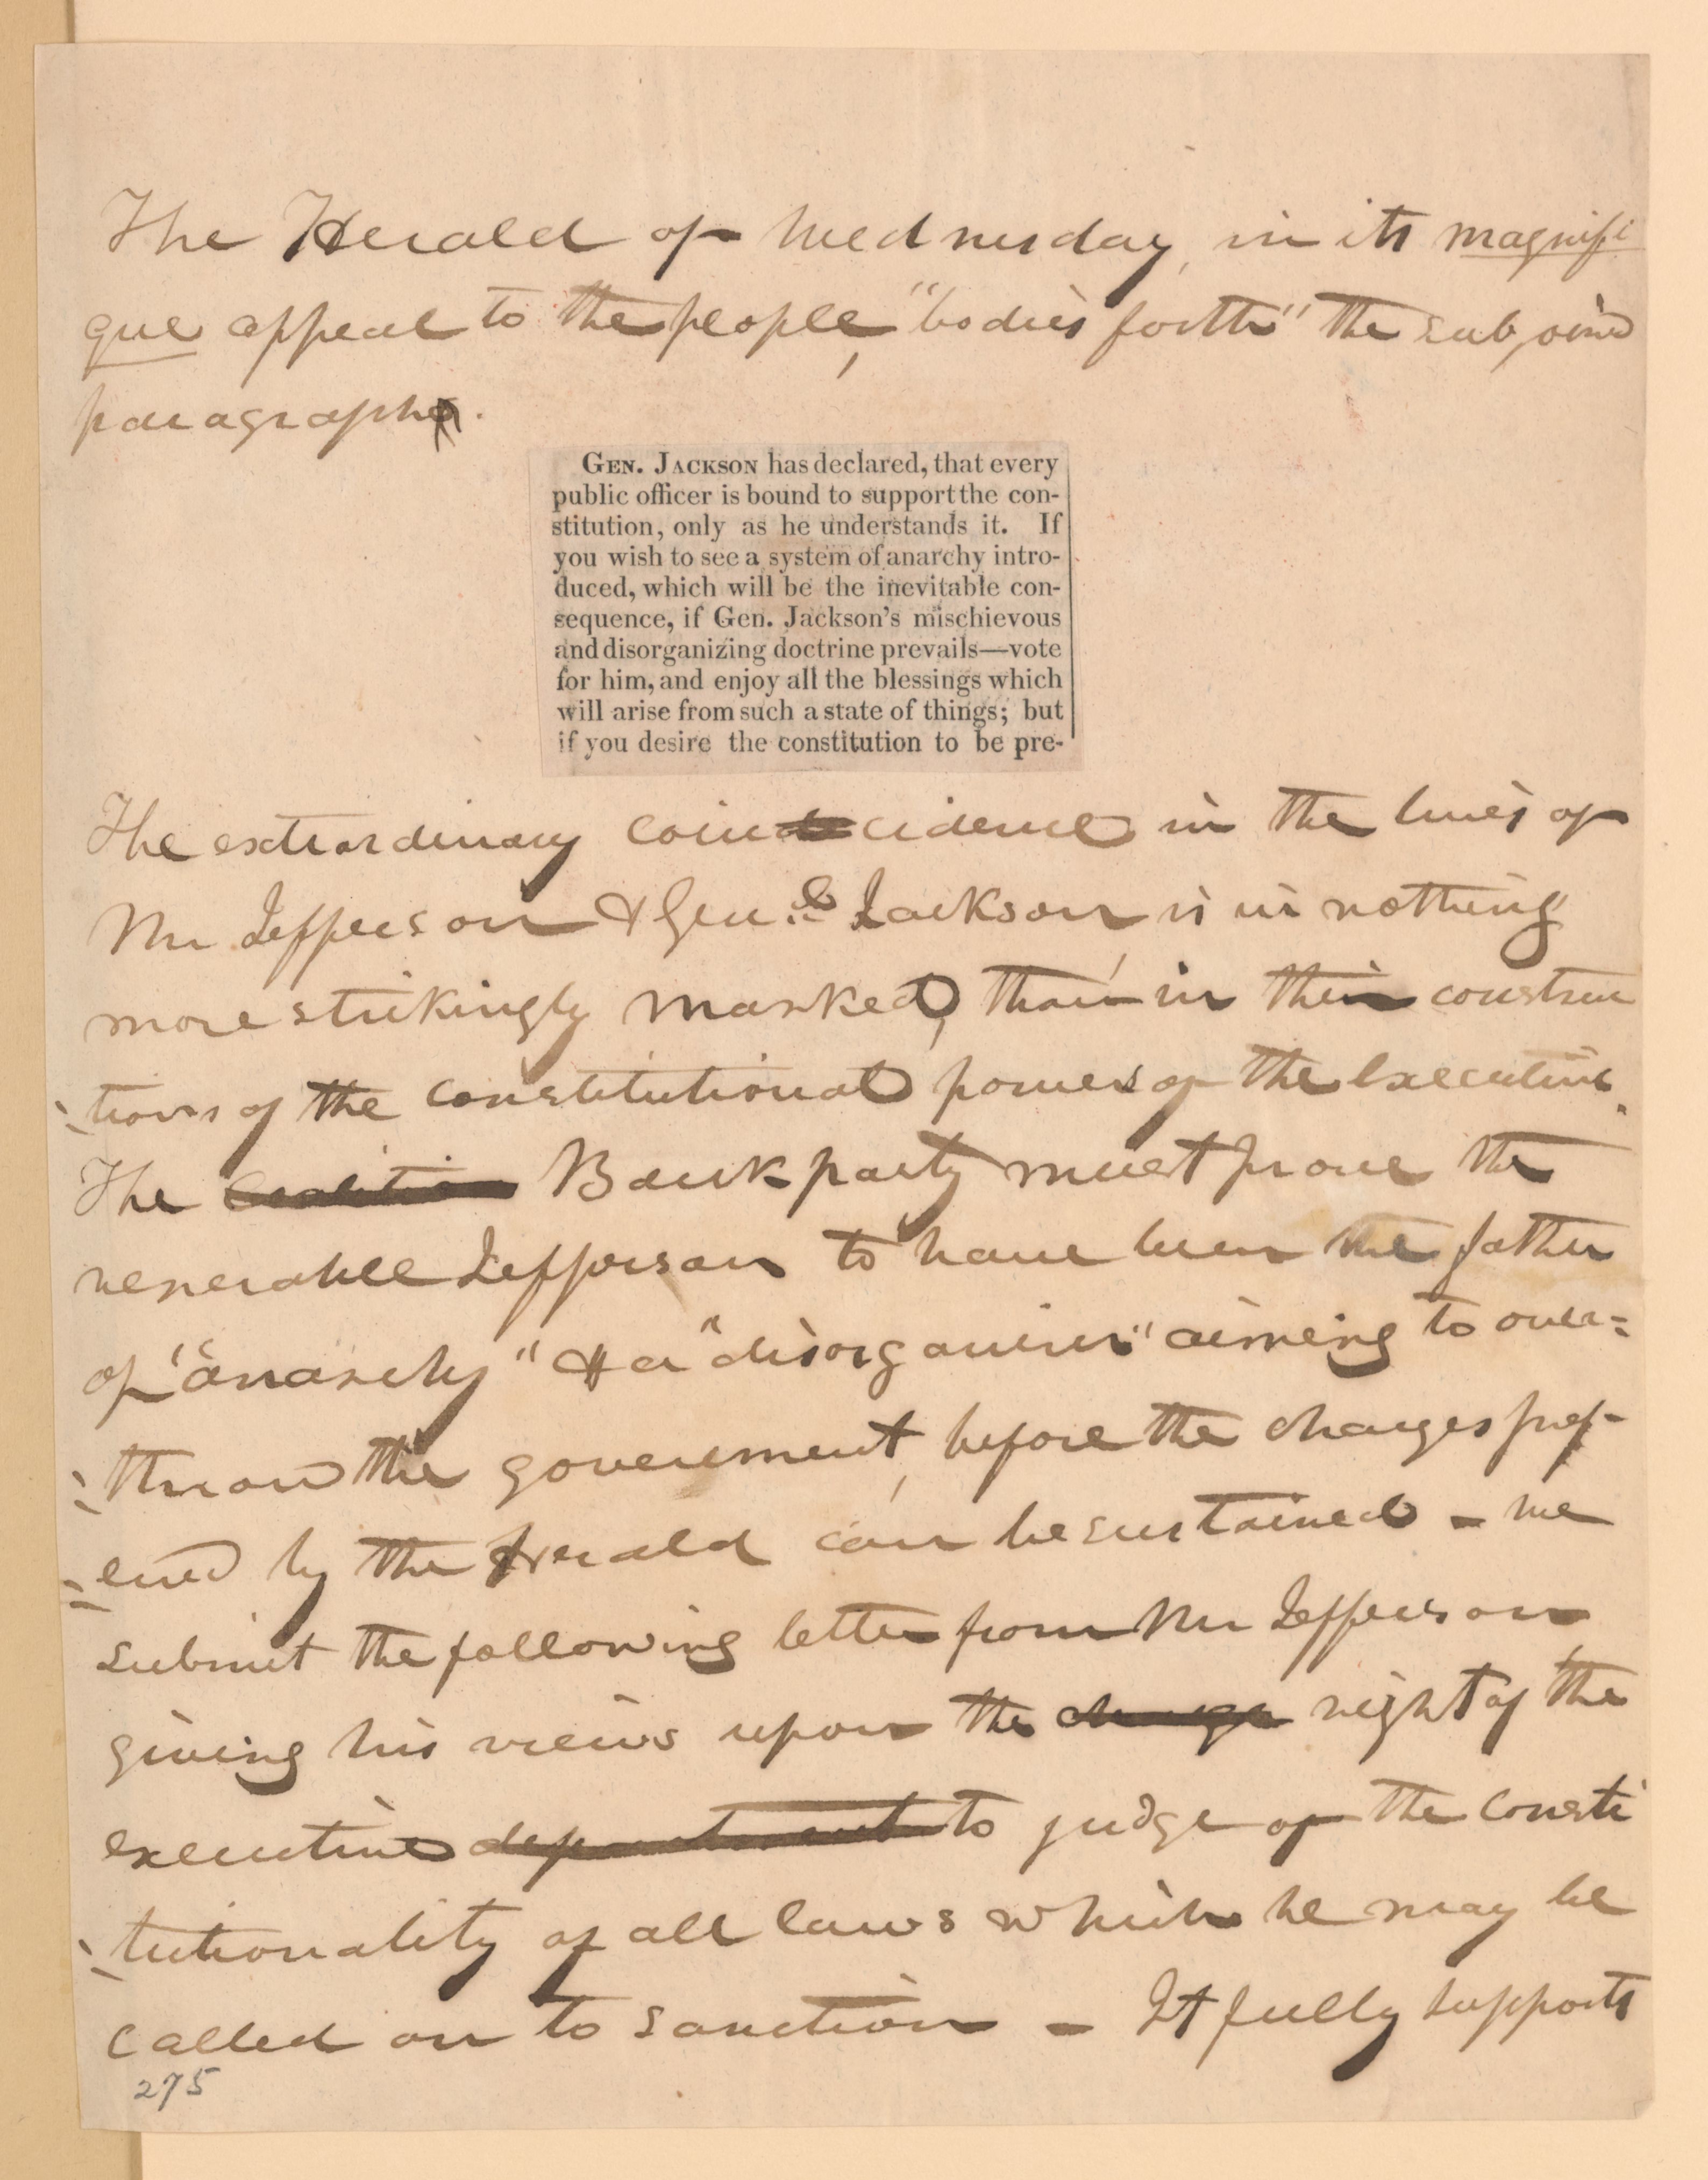 The Herald of Wednesday, in its magnifi
que appeal to the people, "bodies forth" the subjoined
paragraph.
GEN. JACKSON has declared, that every
public officer is bound to support the con-
stitution, only as he understands it. If
you wish to see a system of anarchy intro-
duced, which will be the inevitable con-
sequence, if Gen. Jackson's mischievous
and disorganizing doctrine prevails—vote
for him, and enjoy all the blessings which
will arise from such a state of things; but
if you desire the constitution to be pre-
The extraordinary coincidence in the lives of
Mr Jefferson & Genl Jackson is in nothing
more strikingly marked, than in their construc
-tions of the constitutional powers of the Executive.
The Coalition Bank party must prove the
venerable Jefferson to have been the father
of "anarchy" & a "disorganizer" aiming to over=
=throw the government, before the charges pref-
=ered by the Herald can be sustained - We
submit the following letter from Mr Jefferson
giving his views upon the charge right of the
executive department to judge of the Consti
-tutionality of all laws which he may be
called on to sanction - It fully supports
275